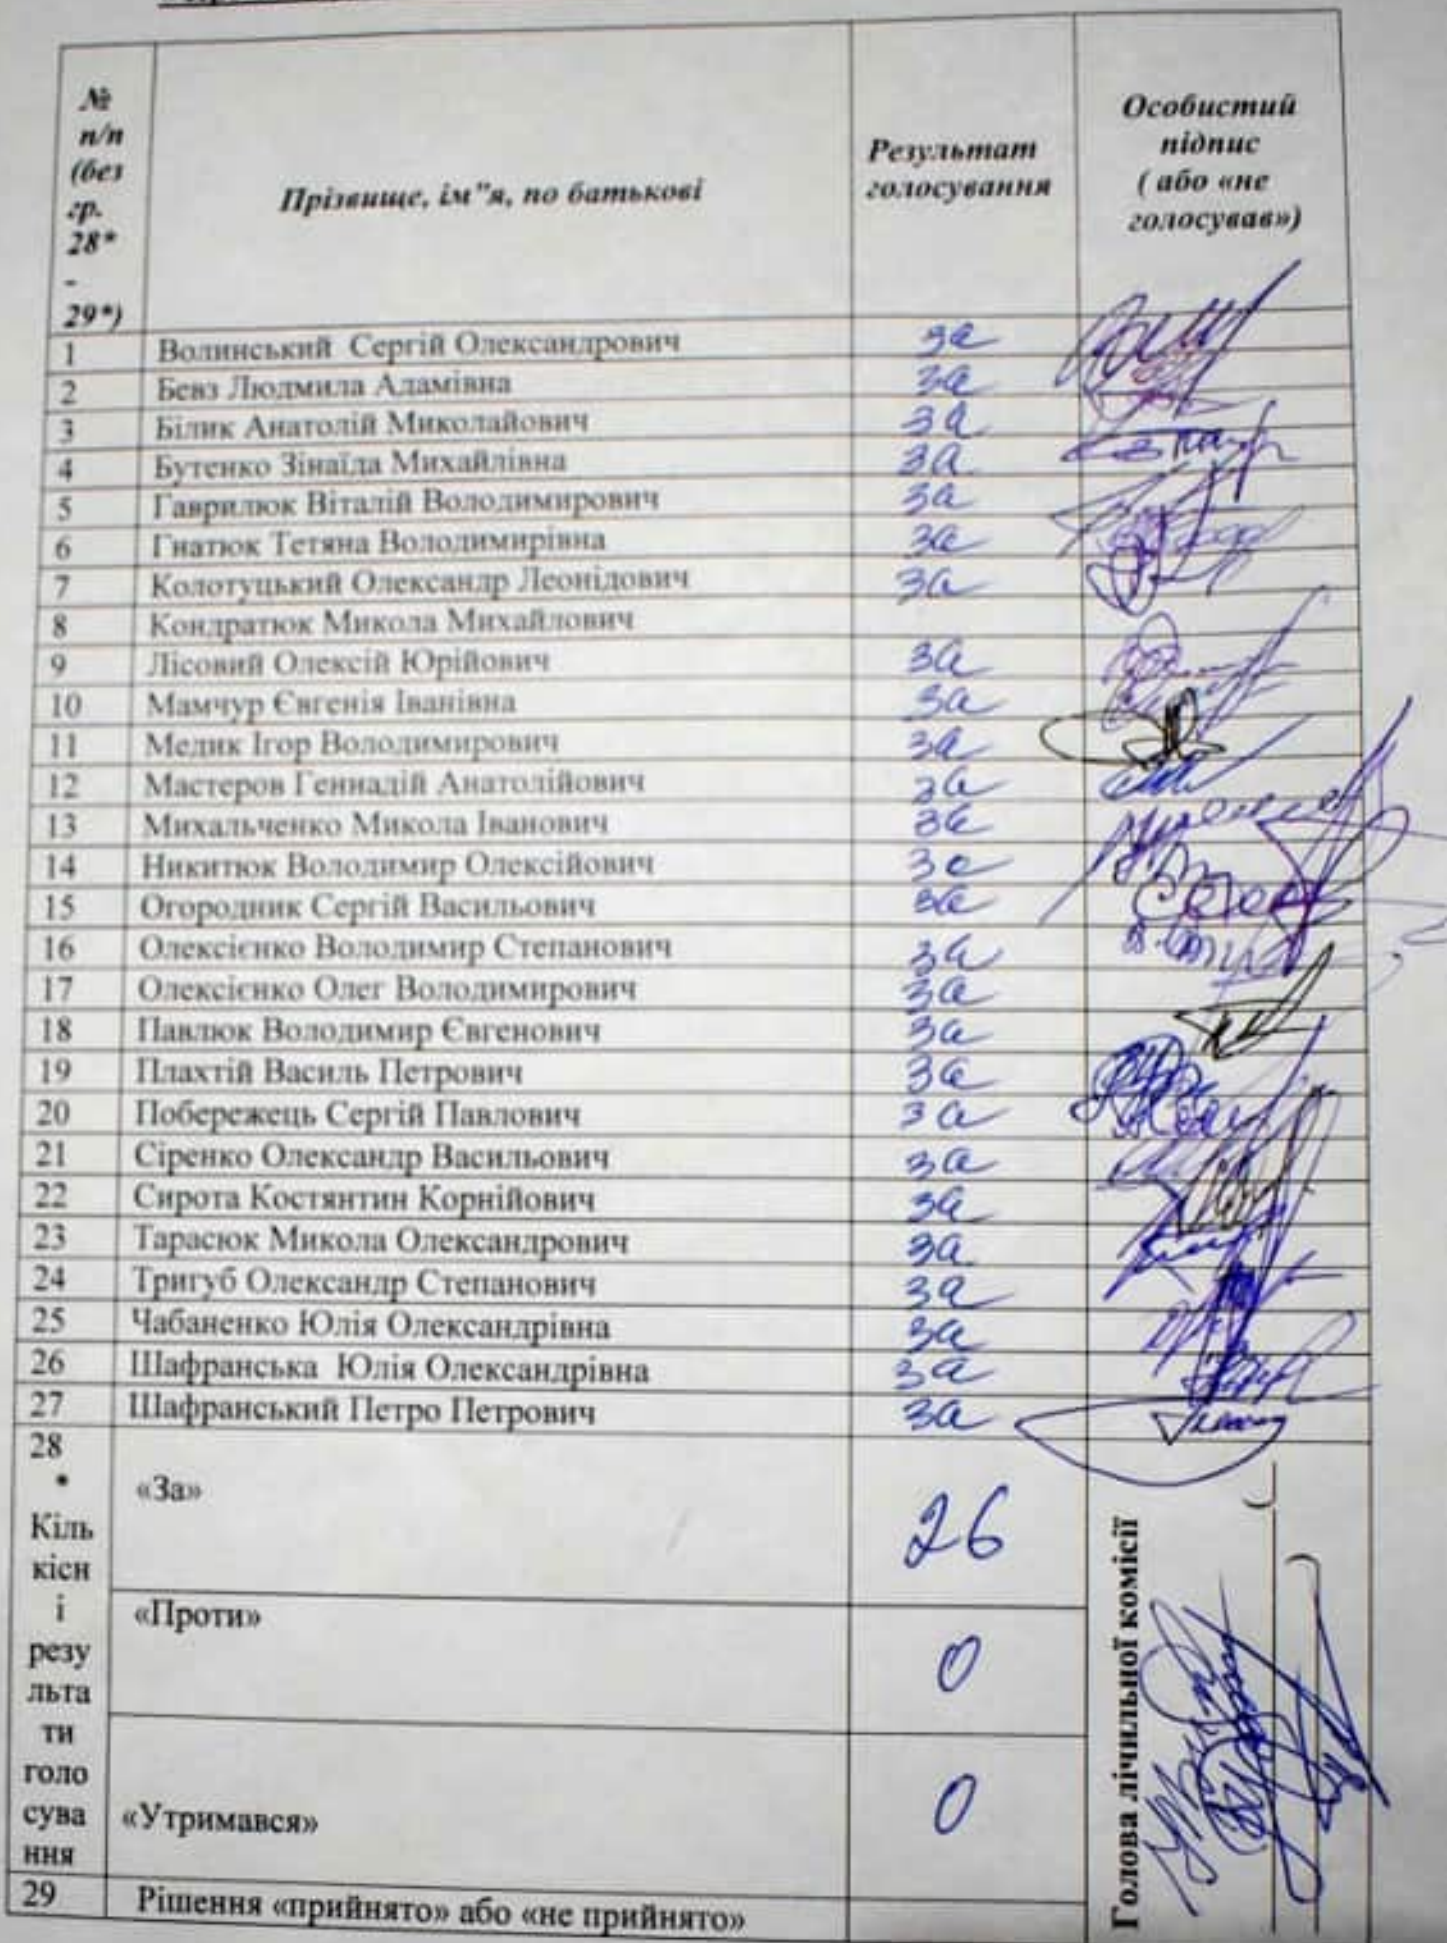 №
п/п
(без
гр.
28*
-
29*)
Прізвище, ім"я, по батькові
Результат
голосування
Особистий
підпис
( або «не
голосував»)
1 Волинський Сергій Олександрович за
2 Бевз Людмила Адамівна за
3 Білик Анатолій Миколайович за
4 Бутенко Зінаїда Михайлівна за
5 Гаврилюк Віталій Володимирович за
6 Гнатюк Тетяна Володимирівна за
7 Колотуцький Олександр Леонідович за
8 Кондратюк Микола Михайлович
9 Лісовий Олексій Юрійович за
10 Мамчур Євгенія Іванівна за
11 Медик Ігор Володимирович за
12 Мастеров Геннадій Анатолійович за
13 Михальченко Микола Іванович за
14 Никитюк Володимир Олексійович за
15 Огородник Сергій Васильович за
16 Олексієнко Володимир Степанович за
17 Олексієнко Олег Володимирович за
18 Павлюк Володимир Євгенович за
19 Плахтій Василь Петрович за
20 Побережець Сергій Павлович за
21 Сіренко Олександр Васильович за
22 Сирота Костянтин Корнійович за
23 Тарасюк Микола Олександрович за
24 Тригуб Олександр Степанович за
25 Чабаненко Юлія Олександрівна за
26 Шафранська Юлія Олександрівна за
27 Шафранський Петро Петрович за
28
*
Кіль
кісн
і
резу
льта
ти
голо
сува
ння
«За» 26
«Проти» 0
«Утримався» 0
Голова лічильної комісії
29 Рішення «прийнято» або «не прийнято»